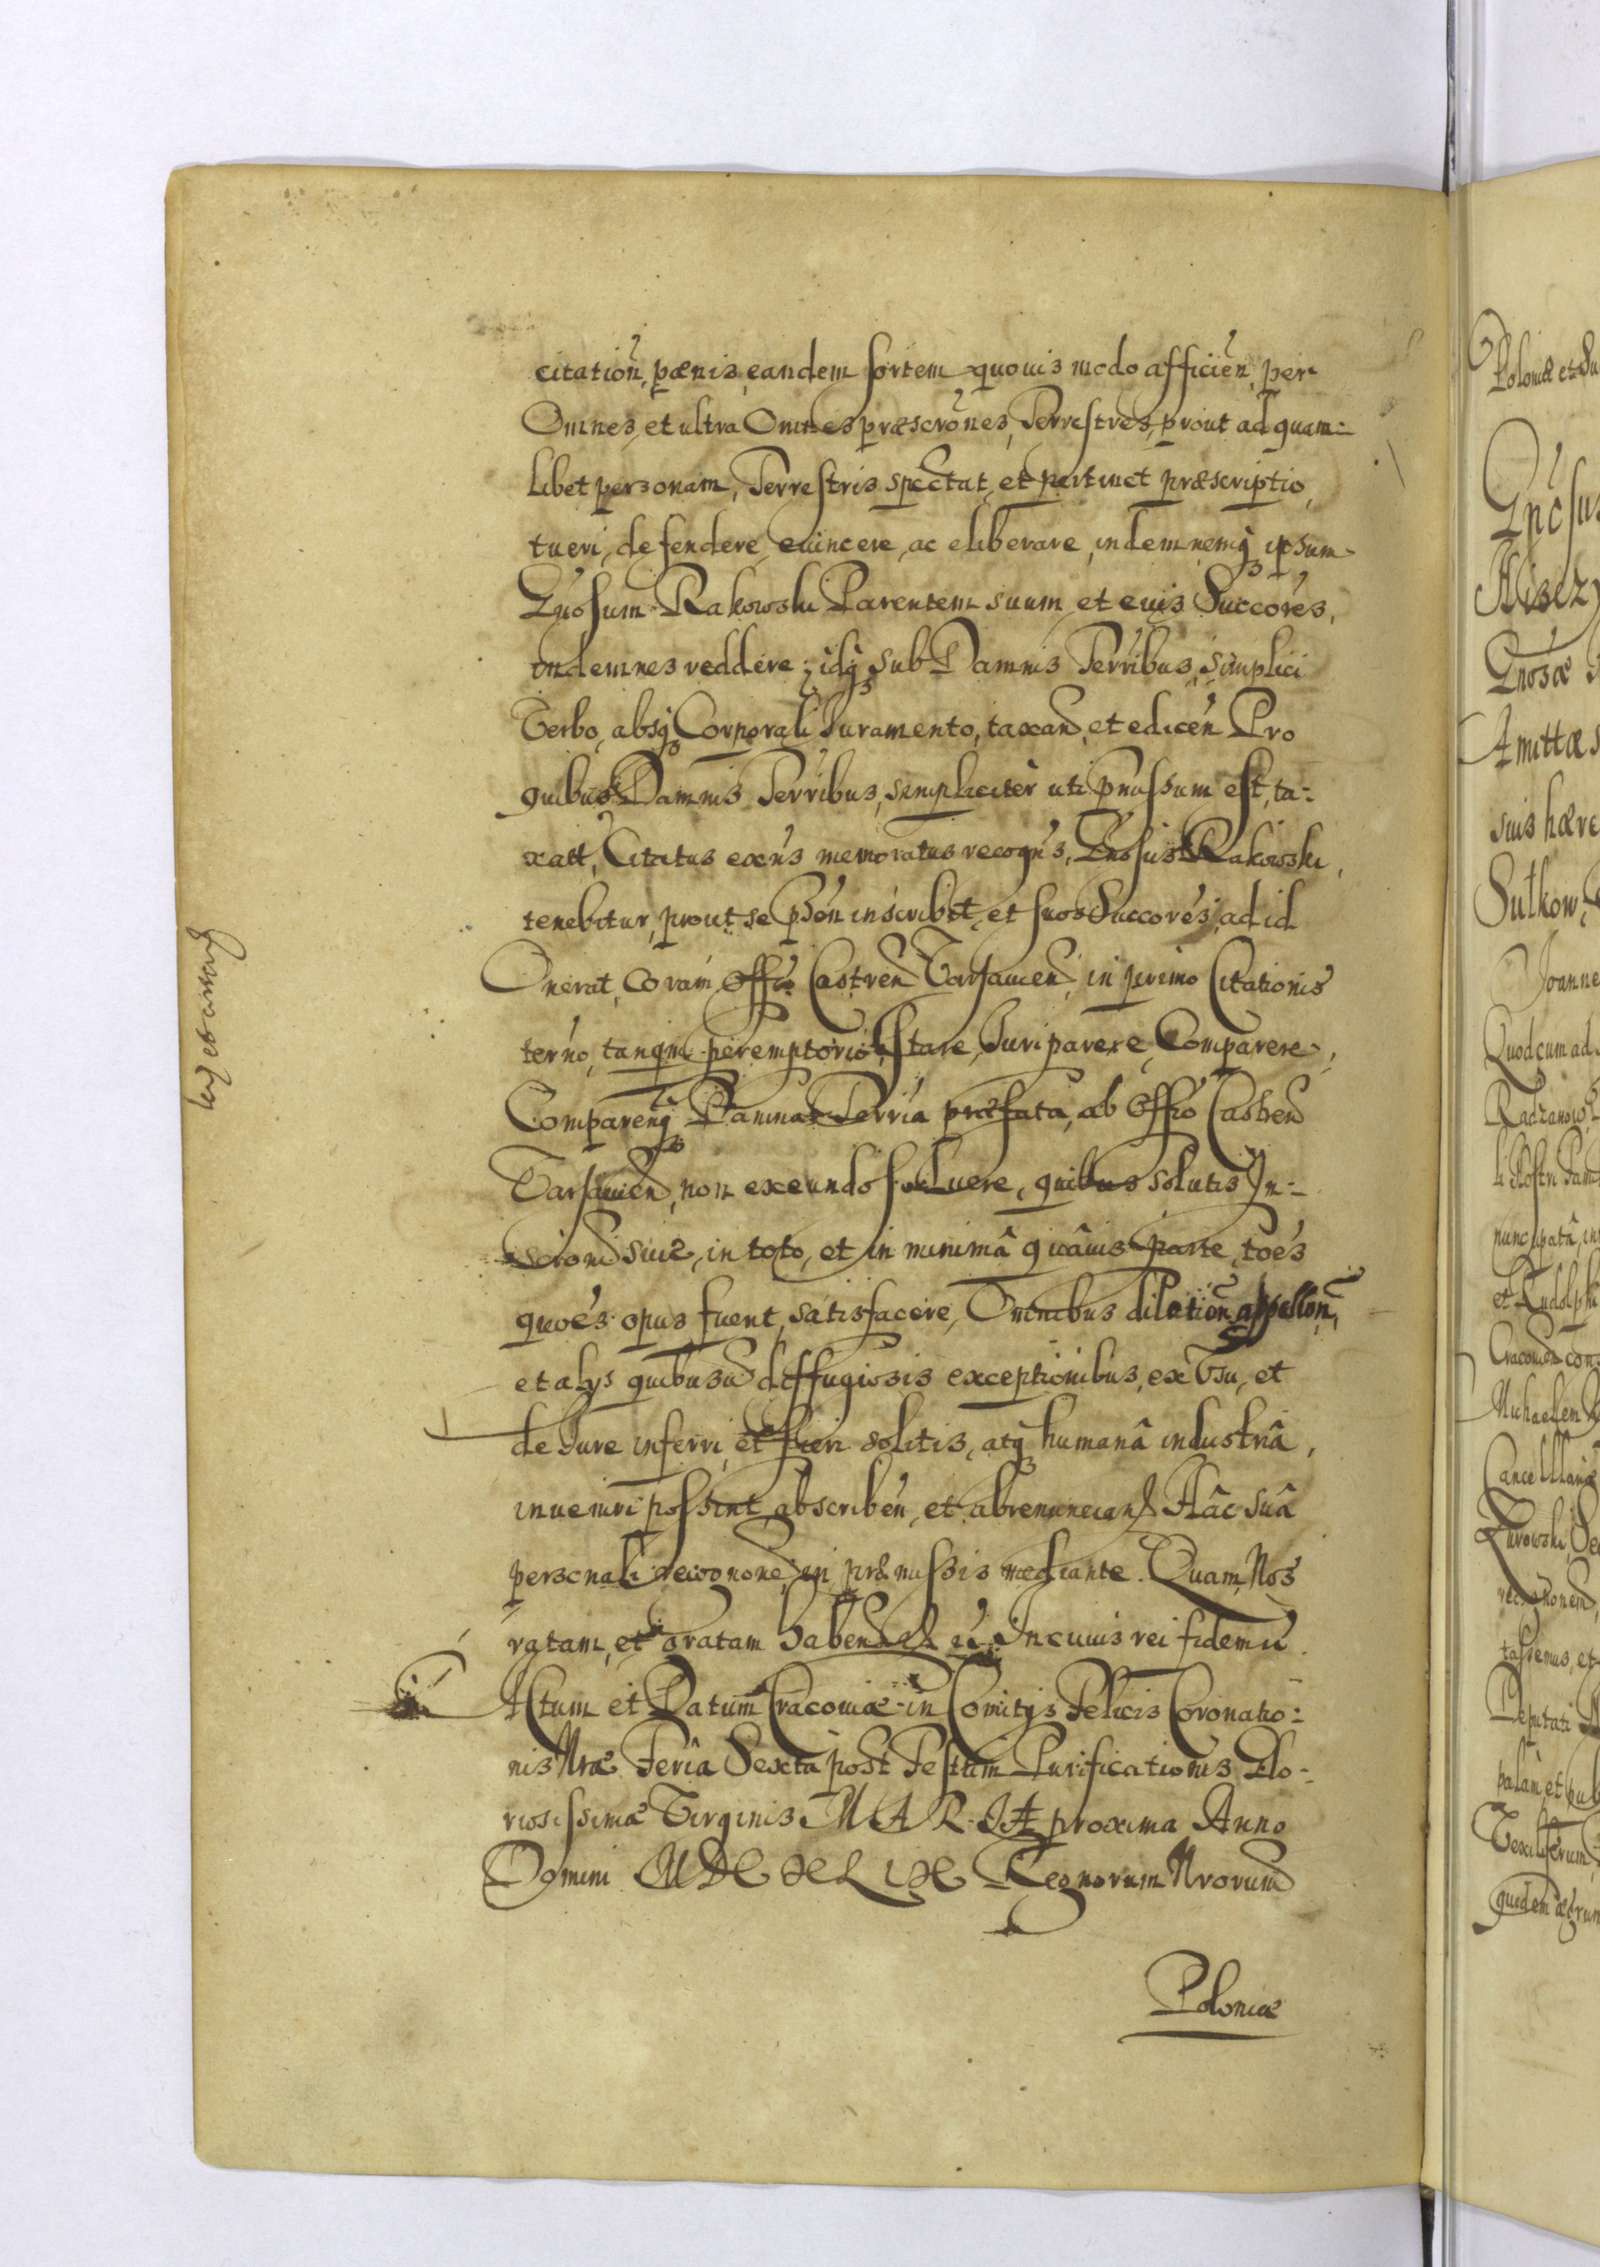 citation, pænis, eandem sortem quouis modo afficien, per
Omnes, et ultra Omnes præscrones, Terrestres, prout ad quam=
libet personam, Terrestris spectat, et pertinet præscriptio,
tueri, defendere, euincere, ac eliberare, indemnemq ipsum
Gnosum Rakowski Parentem suum et euis Succores,
indemnes reddere; idq sub Damnis Terribus, simplici
Verbo, absq Corporali Iuramento, taxand, et edicen Pro
quibus Damnis Terribus, simpliciter uti pmissum est, ta=
xatt, Citatus exns memoratus recogns, Gnosus Rakowski,
tenebitur, prout se psen inscribit, et suos Succores, ad id
Onerat, Coram Offio Castren Varsauien, in primo Citationis
terno, tanqm peremptorio, stare, Iuri parere, Comparere,
Comparenq Damna Terria præfata, ab Offio Castren
Varsauien, non exeundo soluere, quibus solutis In=
scrioni suæ, in toto, et in minimâ quâuis parte, toes
quoes opus fuerit, satisfacere, Omnibus dilation, appellon,
et alijs quibusuis diffugiosis exceptionibus, ex Vsu, et
de Iure inferri, et fieri solitis, atq humanâ industriâ,
inueniri possint, abscriben, et abrenuncian, Hâc suâ
personali recogonone, in præmissis mediante. Quam Nos
ratam, et gratam haben In cuius rei fidem
Actum et Datum Cracouiæ in Comitijs Felicis Coronatio=
nis Nræ Feria Sexta post Festum Purificationis Glo=
riosissimæ Virginis MARIÆ proxima Anno
Domini MDCXLIX Regnorum Nrorum
Poloniæ